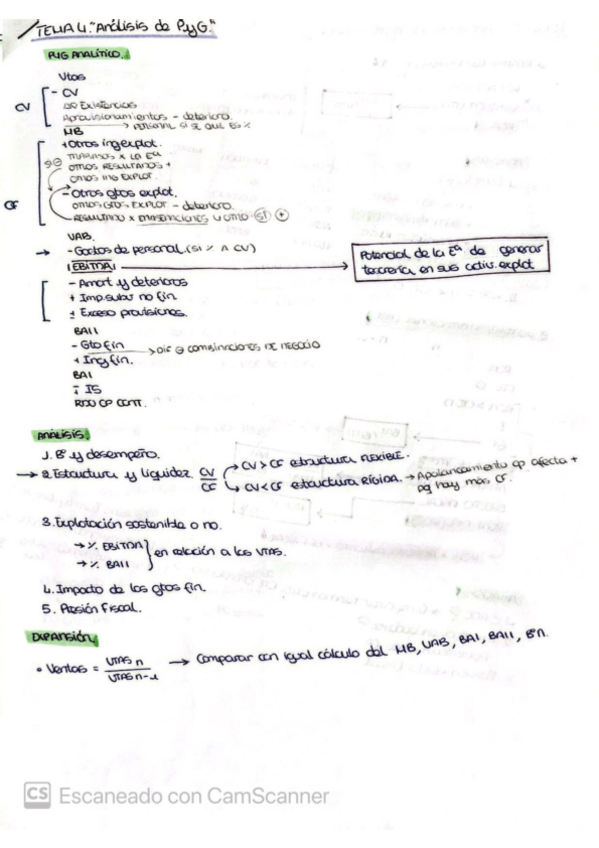 TEMA 4. "Análisis de PyG."
PyG ANALÍTICO.
Vtas
CV - CV
Existencias
Aprovisionamientos - deterioro.
→ PERSONAL SI SE QUE ES %
MB
CF + Otros ing explot.
TRABAJOS X LA Eª
OTROS RESULTADOS +
OTROS ING EXPLOT.
- Otros gtos explot.
OTROS GTOS EXPLOT - deterioro.
RESULTADO X ENAJENACIONES U OTRO SI +
VAB.
→ - Gastos de personal. (si % A CV)
EBITDA → Potencial de la Eª de generar tesorería en sus activ. explot
- Amort y deterioros
+ Imp. subv no fin
± Exceso provisiones.
BAII
- Gto fin → DIF COMBINACIONES DE NEGOCIO
+ Ing fin.
BAI
∓ IS
RDO CP CONT.
ANÁLISIS:
1. Bº y desempeño.
→ 2. Estructura y liquidez CV/CF
CV > CF estructura FLEXIBLE.
CV < CF estructura RÍGIDA. → Apalancamiento op afecta +
pq hay más CF.
3. Explotación sostenible o no.
→ % EBITDA
→ % BAII
en relación a las VTAS.
4. Impacto de los gtos fin.
5. Presión fiscal.
EXPANSIÓN
• Ventas = VTAS n / VTAS n-1 → Comparar con igual cálculo del MB, VAB, BAI, BAII, Bºn.
CS Escaneado con CamScanner